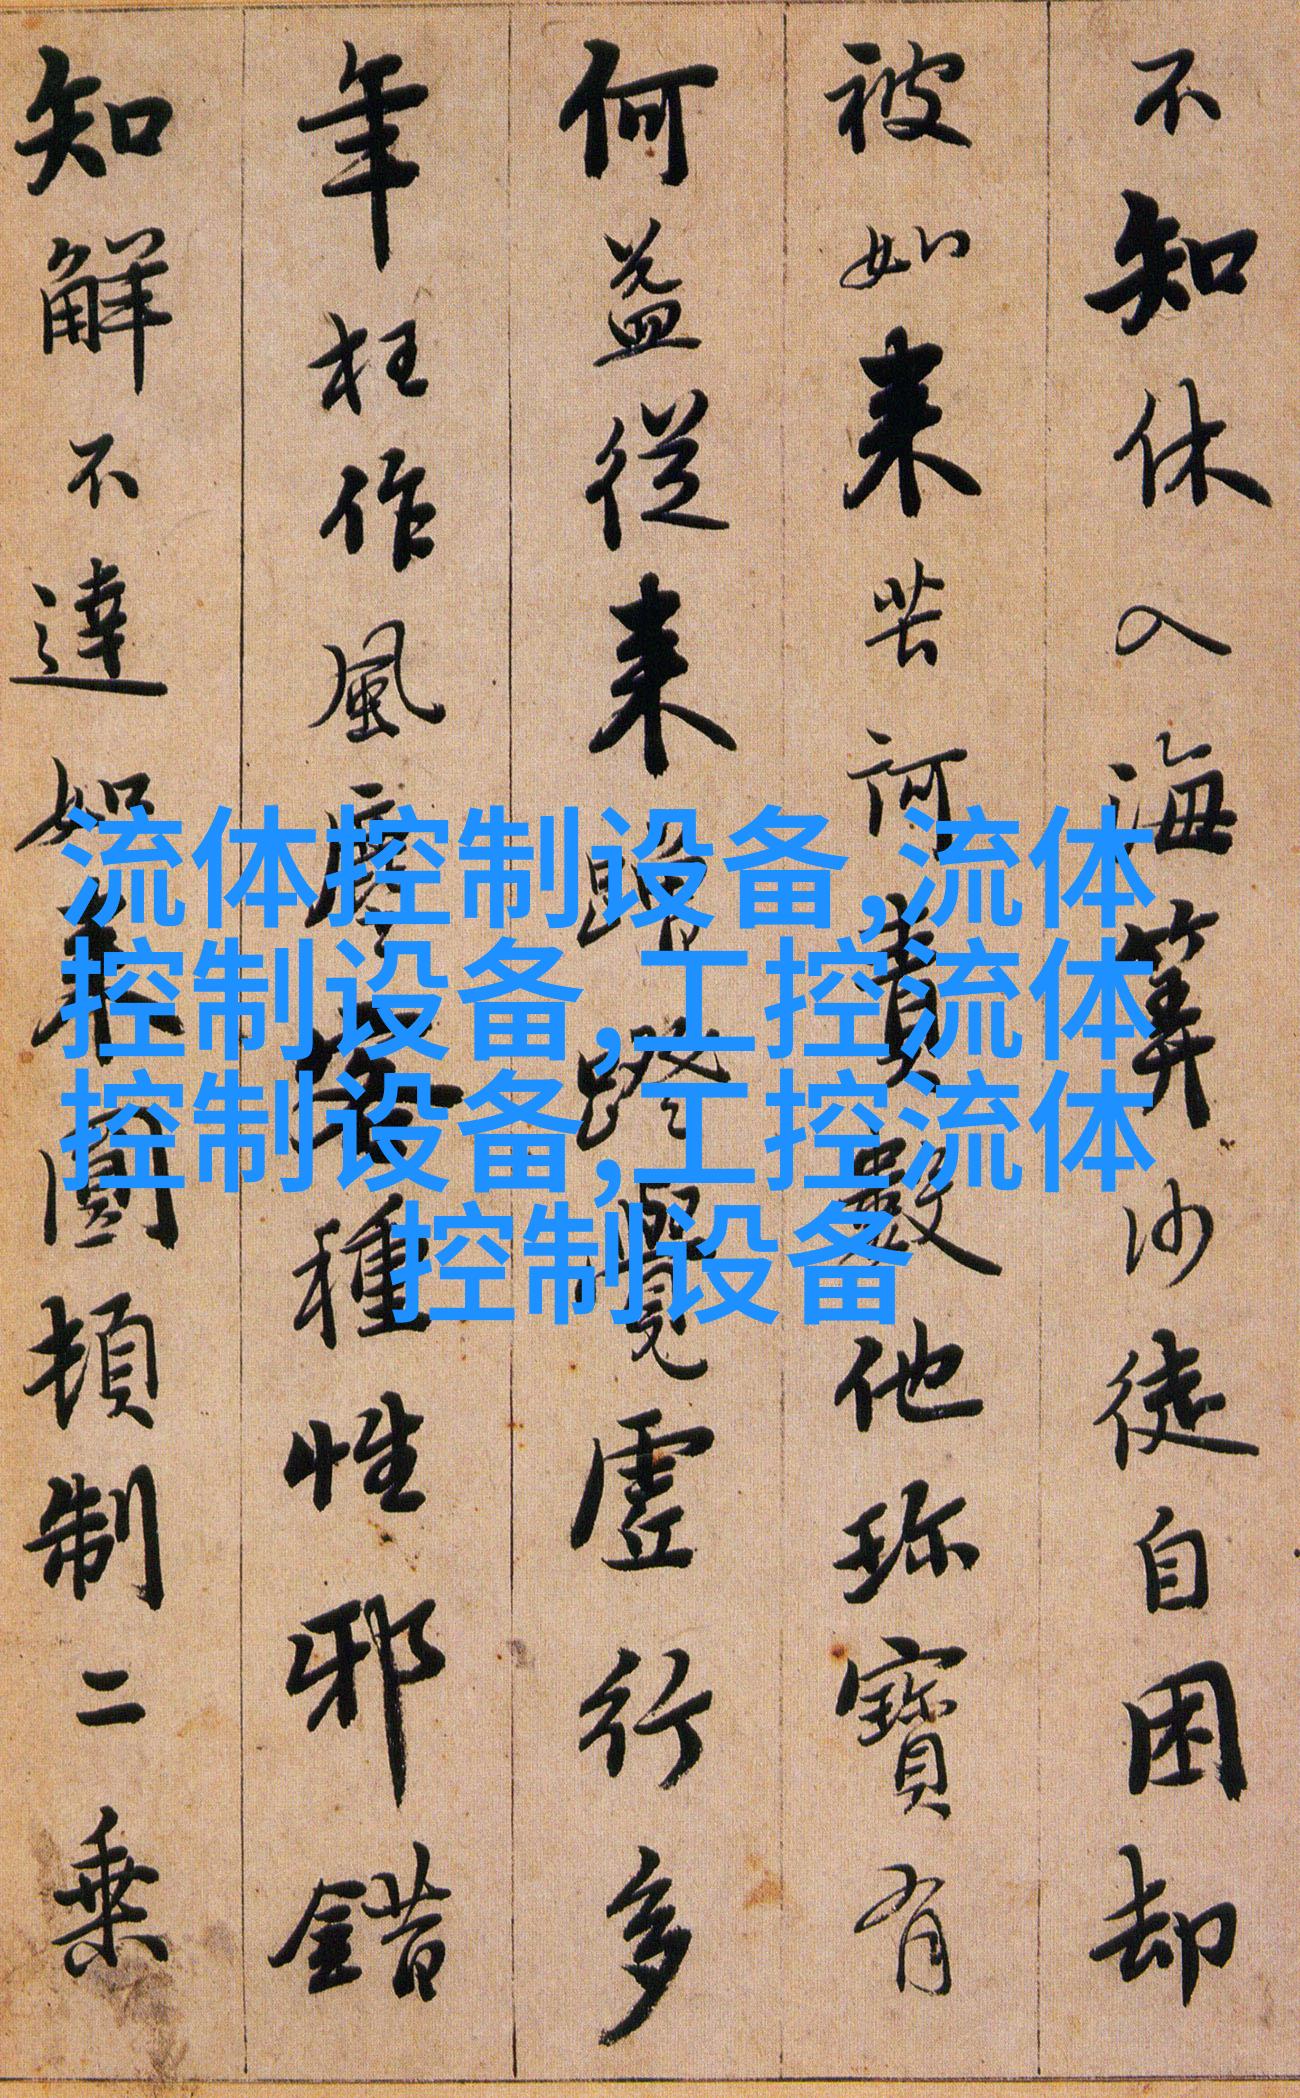 不知休入海算沙徒自困却
被如来苦訶責數他珎寶有
何益從来蹭蹬覺虛行多
年枉作風塵客種性邪錯
知解不達如来圓頓制二乗
流体控制设备,流体
控制设备,工控流体
控制设备,工控流体
控制设备